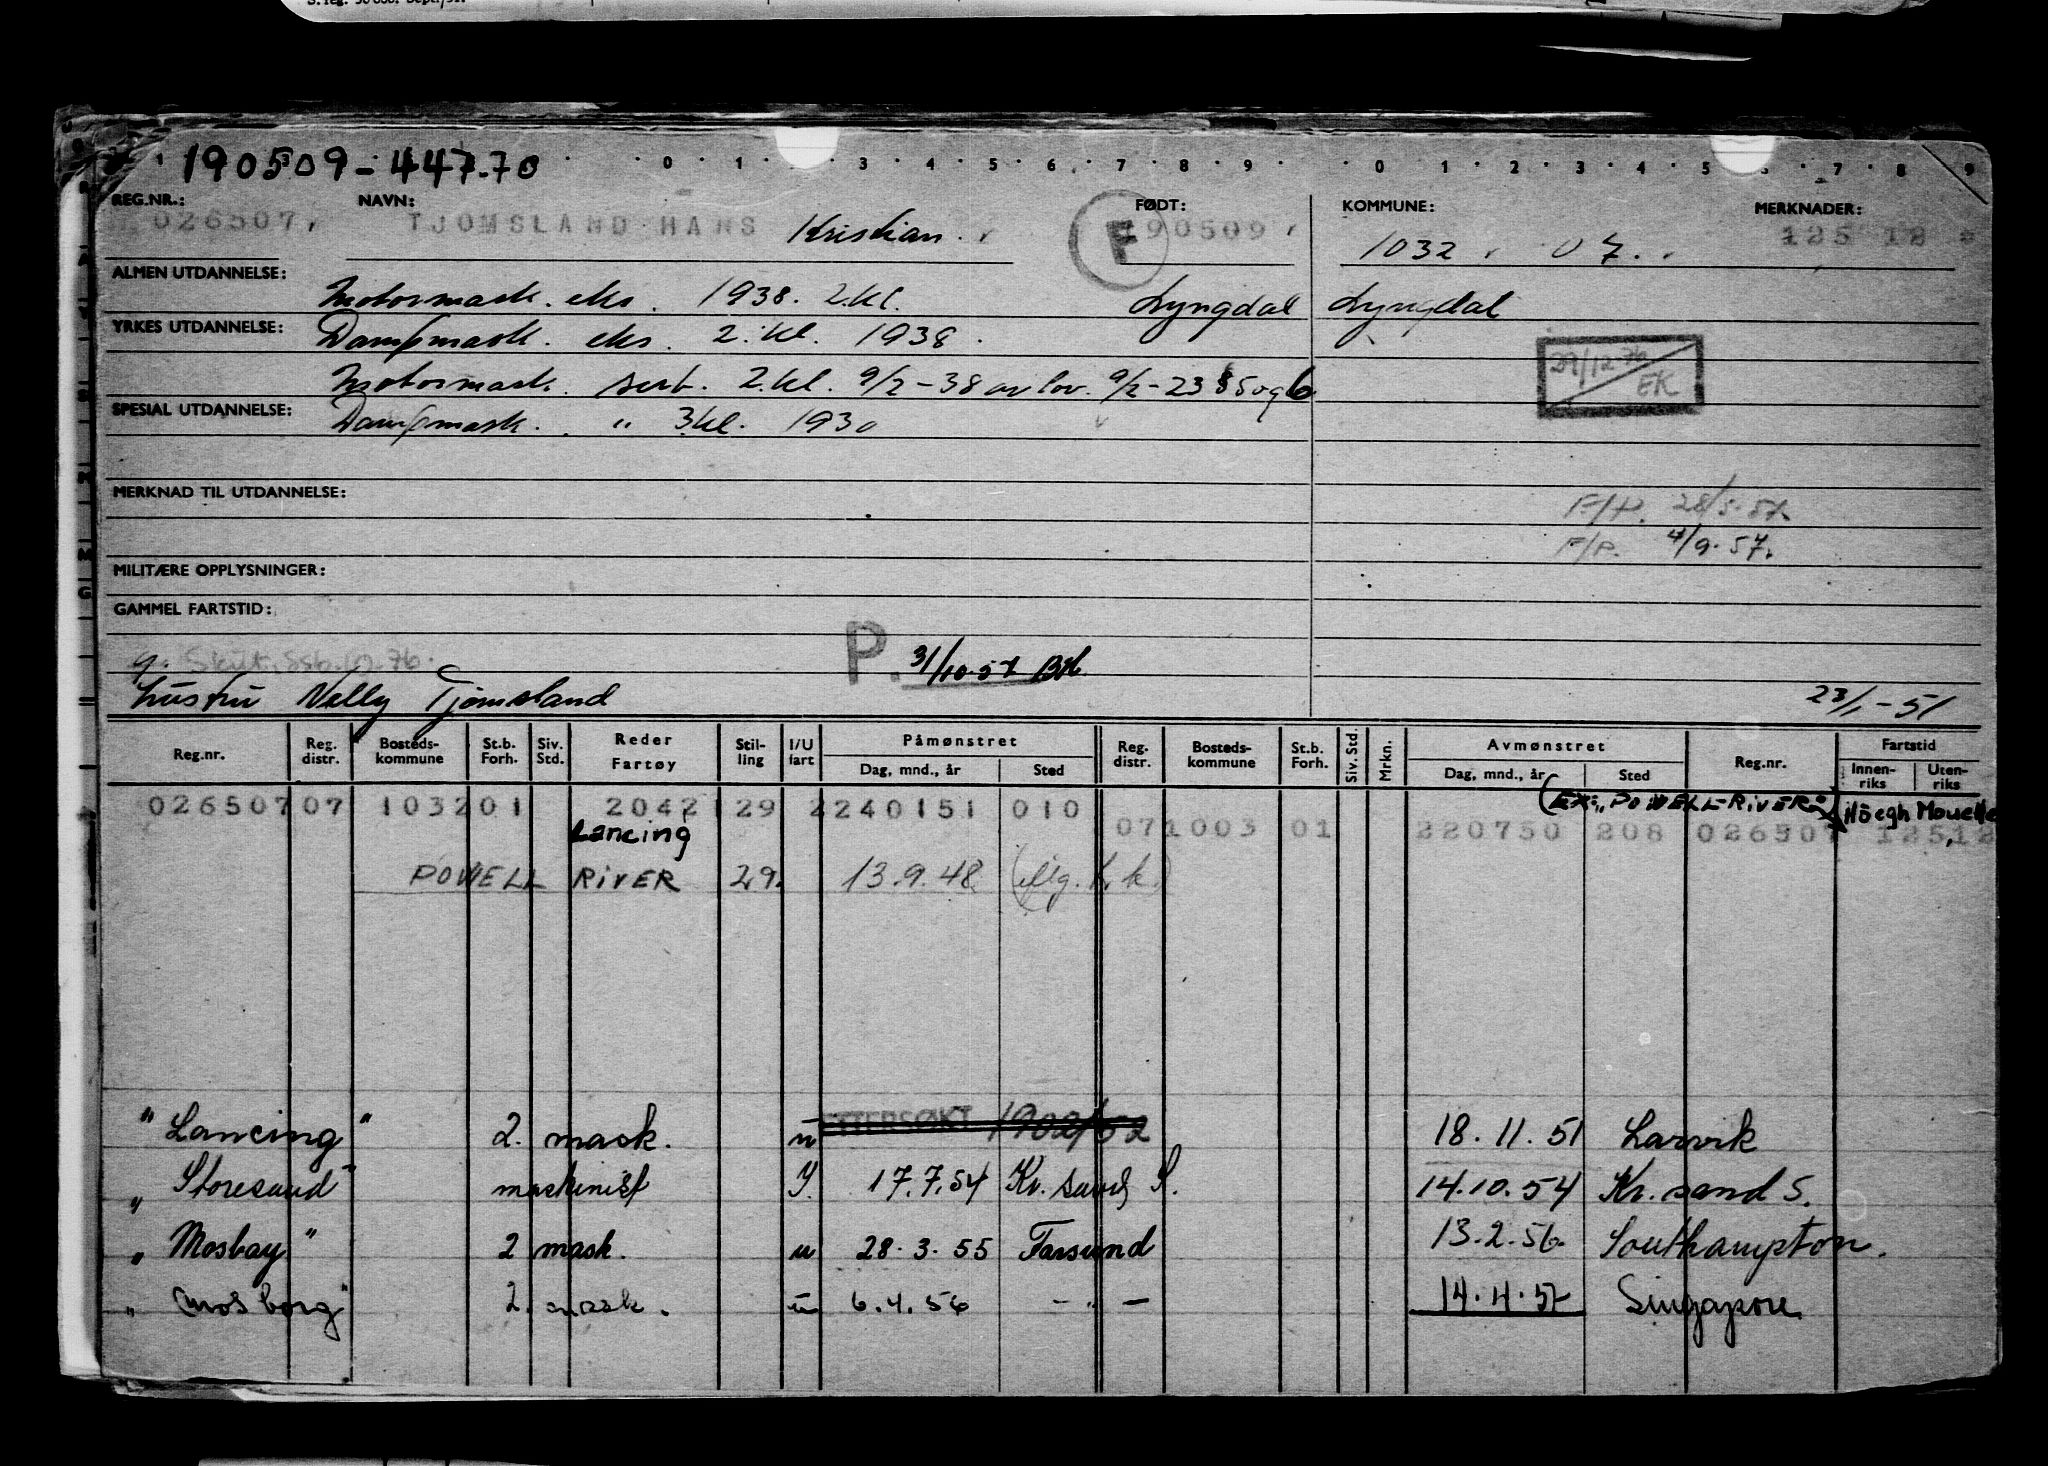 190509-447.70
0 1 3 4 5 6 7 8 9 0 1 2 3 4 7 8 9
REG.NR.: NAVN: FØDT: KOMMUNE: MERKNADER:
026507. TJOMSLAND HANS Kristian F 90509 1032 07. 125 12
ALMEN UTDANNELSE:
Motormask. eks. 1938. 2.kl. Lyngdal Lyngdal
YRKES UTDANNELSE: Dampmask. eks. 2.kl. 1938.
29/12-76 EK
Motormask. sert. 2.kl. 9/2-38 av lov. 9/2-23 § 5 og 6
SPESIAL UTDANNELSE: Dampmask. " 3kl. 1930
MERKNAD TIL UTDANNELSE:
F/P. 28/5-57.
F/P. 4/9-57.
MILITÆRE OPPLYSNINGER:
GAMMEL FARTSTID:
P. 31/10-57
g. Skut.ssb. 76.
hustru Nelly Tjomsland 23/1-51
Reg.nr. Reg. distr. Bosteds- kommune St.b. Forh. Siv. Std. Reder Fartøy Stil- ling I/U fart Påmønstret Dag, mnd., år Sted Reg. distr. Bosteds- kommune St.b. Forh. Siv. Std. Mrkn. Avmønstret Dag, mnd., år Sted Reg.nr. Fartstid Innen- riks Uten- riks
(Ex: "POWELL-RIVER") Höegh Mouette
026507 07 103201 2042129 2240151 010
071003 01 220750 208 026507 125,12
Lancing
POWELL RIVER 29. 13.9.48.
"Lancing" 2. mask. u ETTERSØKT 18.11.51 Larvik
"Storesand" maskinist I. 17.7.54 Kr. sand S. 14.10.54 Kr. sand S.
"Mosbay" 2 mask. u 28.3.55 Farsund 13.2.56. Southampton.
"Mosborg" 2. mask. u 6.4.56 - " - 14.4.57 Singapore